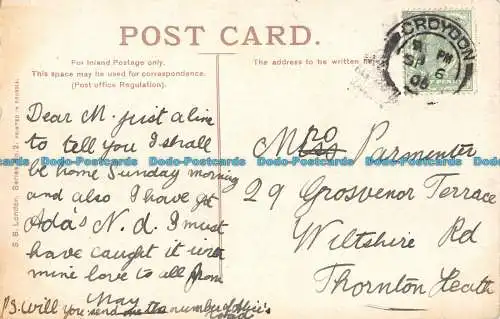 POST CARD.
For Inland Postage only.
This space may be used for correspondence.
(Post office Regulation).
The address to be written here
CROYDON
PM
SP 6
06
Dear M. just a line
to tell you I shall
be home Sunday morning
and also I have got
Ada's N. d. I must
have caught it in
mine love to all from
May
P.S. Will you send me the number of
Mrs Parmenter
29 Grosvenor Terrace
Wiltshire Rd
Thornton Heath
S. B. London. Series
Dodo-Postcards Dodo-Postcards Dodo-Postcards Dodo-Postcards Dodo-Postcards